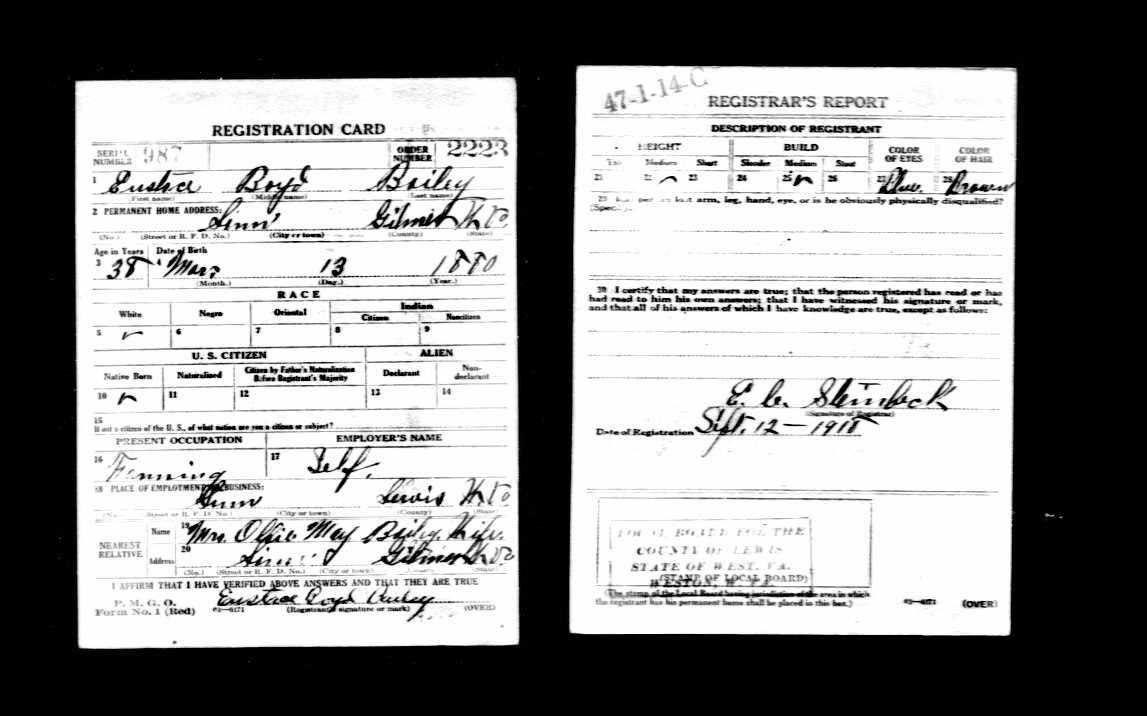 REGISTRATION CARD
SERIAL NUMBER 987 ORDER NUMBER 2223
1 Eustace Boyd Bailey
(First name) (Middle name) (Last name)
2 PERMANENT HOME ADDRESS:
Linn Gilmer W Va
(No.) (Street or R. F. D. No.) (City or town) (County) (State)
Age in Years Date of Birth
3 38 4 Mar 13 1880
(Month.) (Day.) (Year.)
RACE
White Negro Oriental Indian
Citizen Noncitizen
5 6 7 8 9
U. S. CITIZEN ALIEN
Native Born Naturalized Citizen by Father's Naturalization Before Registrant's Majority Declarant Non-declarant
10 11 12 13 14
15
If not a citizen of the U. S., of what nation are you a citizen or subject?
PRESENT OCCUPATION EMPLOYER'S NAME
16 Farming 17 Self.
18 PLACE OF EMPLOYMENT OR BUSINESS:
Linn Lewis W Va
(No.) (Street or R. F. D. No.) (City or town) (County) (State)
NEAREST RELATIVE
Name 19 Mrs. Ollie May Bailey. Wife.
Address 20 Linn Gilmer W Va
(No.) (Street or R. F. D. No.) (City or town) (County) (State)
I AFFIRM THAT I HAVE VERIFIED ABOVE ANSWERS AND THAT THEY ARE TRUE
P. M. G. O.
Form No. 1 (Red) Eustace Boyd Bailey
(Registrant's signature or mark) (OVER)
47-1-14-C
REGISTRAR'S REPORT
DESCRIPTION OF REGISTRANT
HEIGHT BUILD COLOR OF EYES COLOR OF HAIR
Tall Medium Short Slender Medium Stout
21 22 23 24 25 26 27 Blue. 28 Brown
29 Has person lost arm, leg, hand, eye, or is he obviously physically disqualified?
(Specify.)
30 I certify that my answers are true; that the person registered has read or has
had read to him his own answers; that I have witnessed his signature or mark,
and that all of his answers of which I have knowledge are true, except as follows:
E. C. Steinbeck
(Signature of Registrar)
Date of Registration Sept. 12 - 1918
LOCAL BOARD FOR THE
COUNTY OF LEWIS
STATE OF WEST. VA.
(STAMP OF LOCAL BOARD)
WESTON, W. VA.
(The stamp of the Local Board having jurisdiction of the area in which
the registrant has his permanent home shall be placed in this box.)
(OVER)